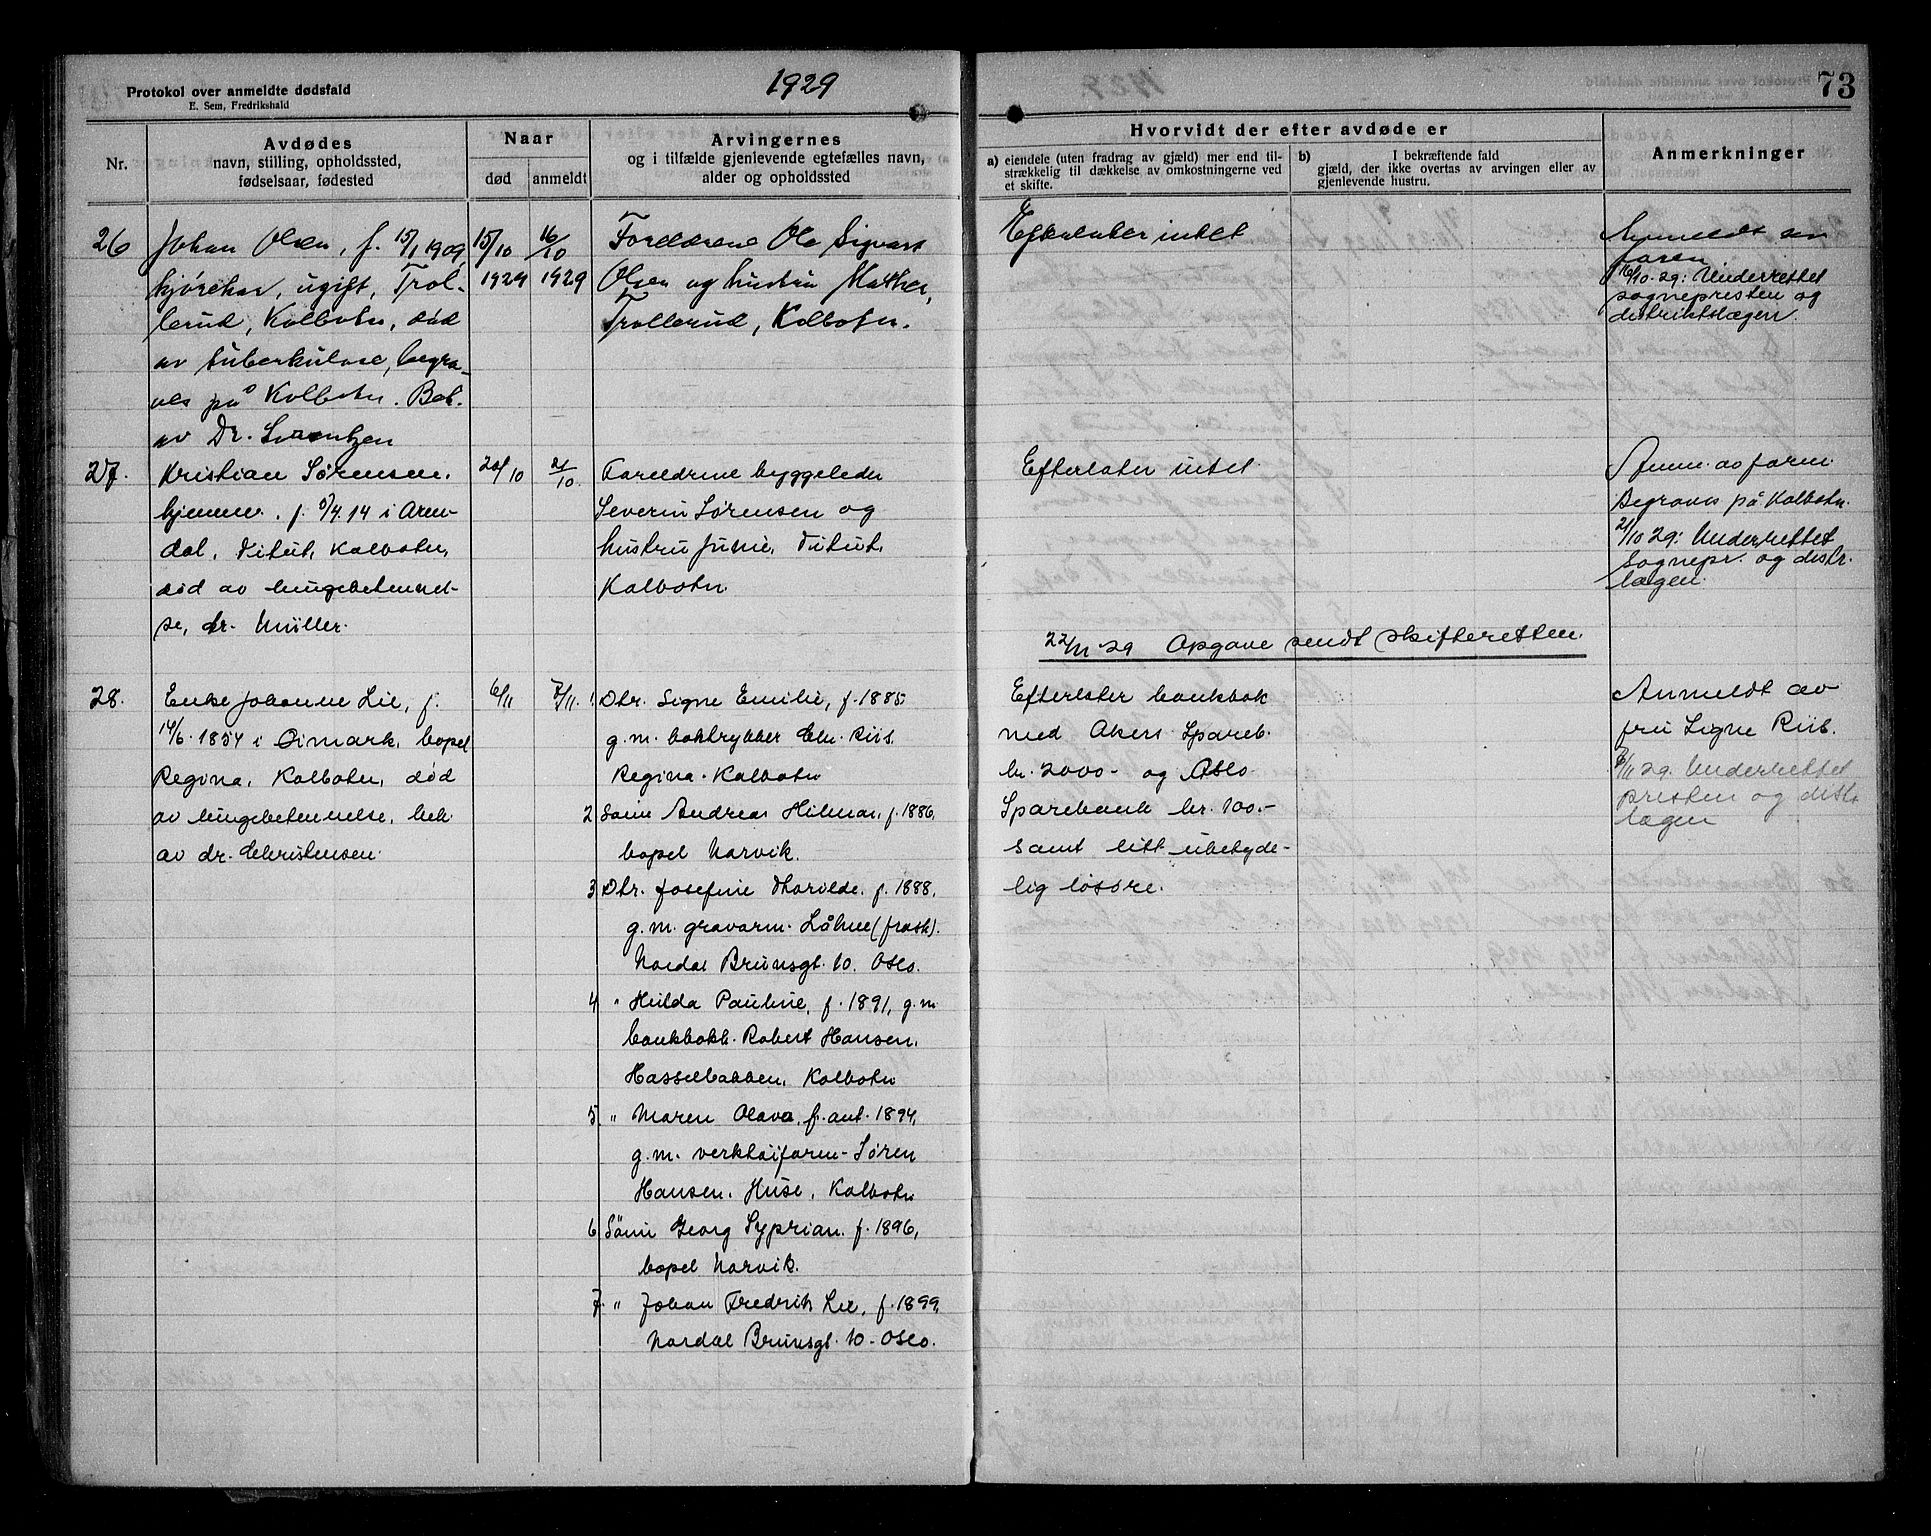 Protokol over anmeldte dødsfald
E. Sem, Fredrikshald
1929
73
Nr.
Avdødes
navn, stilling, opholdssted,
fødselsaar, fødested
Naar
død
anmeldt
Arvingernes
og i tilfælde gjenlevende egtefælles navn,
alder og opholdssted
Hvorvidt der efter avdøde er
a) eiendele (uten fradrag av gjæld) mer end til-
strækkelig til dækkelse av omkostningerne ved
et skifte.
b) I bekræftende fald
gjæld, der ikke overtas av arvingen eller av
gjenlevende hustru.
Anmerkninger
26
Johan Olsen, f. 15/1 1909,
kjørekar, ugift, Trol-
lerud, Kolbotn, død
av tuberkulose, begra-
ves på Kolbotn. Beh.
av Dr.
15/10
1929
16/10
1929
Forældrene Ola Sigvart
Olsen og hustru Mathea,
Trollerud, Kolbotn.
Efterlater intet
Anmeldt av
faren
16/10-29: Underrettet
sognepresten og
distriktslægen.
27.
Kristian Sørensen,
hjemme. f. 5/4.14 i Aren-
dal, Kolbotn,
død av lungebetennel-
se, dr. Müller.
20/10
21/10
Foreldrene byggeleder
Severin Sørensen og
hustru
Kolbotn.
Efterlater intet
Anm. av faren.
Begraves på Kolbotn.
21/10 29: Underrettet
sognepr. og distr.
lægen.
22/11-29 Opgave sendt skifteretten.
28.
Enke Johanne Lie, f.
14/6-1854 i Øimark, bopel
Regina, Kolbotn, død
av lungebetennelse, beh.
av dr. Christensen.
6/11
7/11
1. Dtr. Signe Emilie, f. 1885
g.m. boktrykker Chr. Riis.
Regina - Kolbotn
2 Sønn Andreas Hilmar, f. 1886,
bopel Narvik.
3 Dtr. Josefine Thorilde, f. 1888,
g.m. gravørm. Låhne (frask).
Nordal Brunsgt. 10. Oslo.
4 " Hilda Pauline, f. 1891, g.m.
bankbokh. Robert Hansen,
Hasselbakken, Kolbotn
5. " Maren Olava, f. ant. 1894,
g.m. verktøiform. Søren
Hansen, Huse, Kolbotn
6 Sønn Georg Syprian. f. 1896,
bopel Narvik.
7. " Johan Fredrik Lie, f. 1899,
Nordal Brunsgt. 10 - Oslo.
Efterlater bankbok
med Akers Spareb.
kr. 2000- og Oslo
Sparebank kr. 100.-
samt litt ubetyde-
lig løsøre.
Anmeldt av
fru Signe Riis.
8/11 29. Underrettet
presten og distr.
lægen